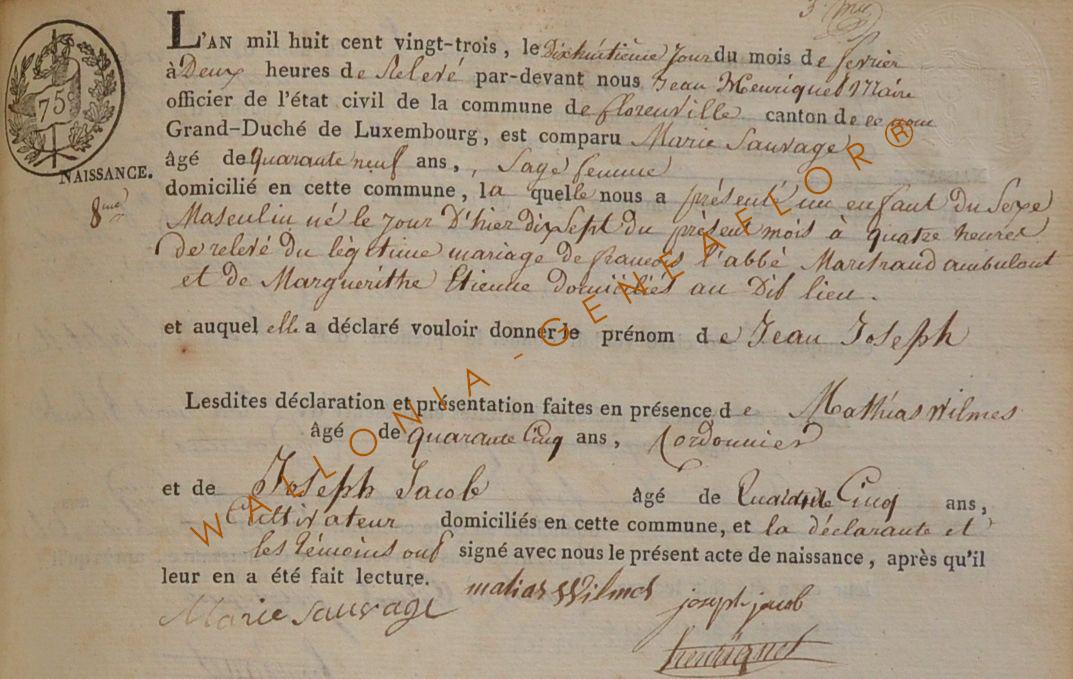 3.me
75
L'AN mil huit cent vingt-trois, le Dixhuitième Jour du mois de fevrier
à Deux heures de Relevé par-devant nous Jean Henriquet Maire
officier de l'état civil de la commune de florenville canton de ce nom
Grand-Duché de Luxembourg, est comparu Marie Sauvage
âgé de quarante neuf ans, Sage femme
NAISSANCE.
8me
domicilié en cette commune, la quelle nous a présenté un enfant Du Sexe
Masculin né le jour D'hier dix Sept du présent mois à quatre heures
de relevé du légitime mariage de francois l'abbé Marchand ambulant
et de Marguerithe Etienne domiciliés au Dit lieu.
et auquel elle a déclaré vouloir donner le prénom de Jean Joseph
Lesdites déclaration et présentation faites en présence de Mathias Wilmes
âgé de quarante Cinq ans, Cordonnier
et de Joseph Jacob âgé de Quarante Cinq ans,
Cultivateur domiciliés en cette commune, et la déclarante et
les témoins ont signé avec nous le présent acte de naissance, après qu'il
leur en a été fait lecture.
Marie Sauvage matias Wilmes joseph jacob
henriquet
WALLONIA-GENEAFLOR®